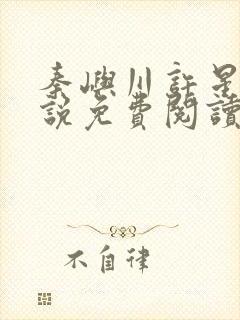 秦嶼川許是
說免費閱讀
不自律